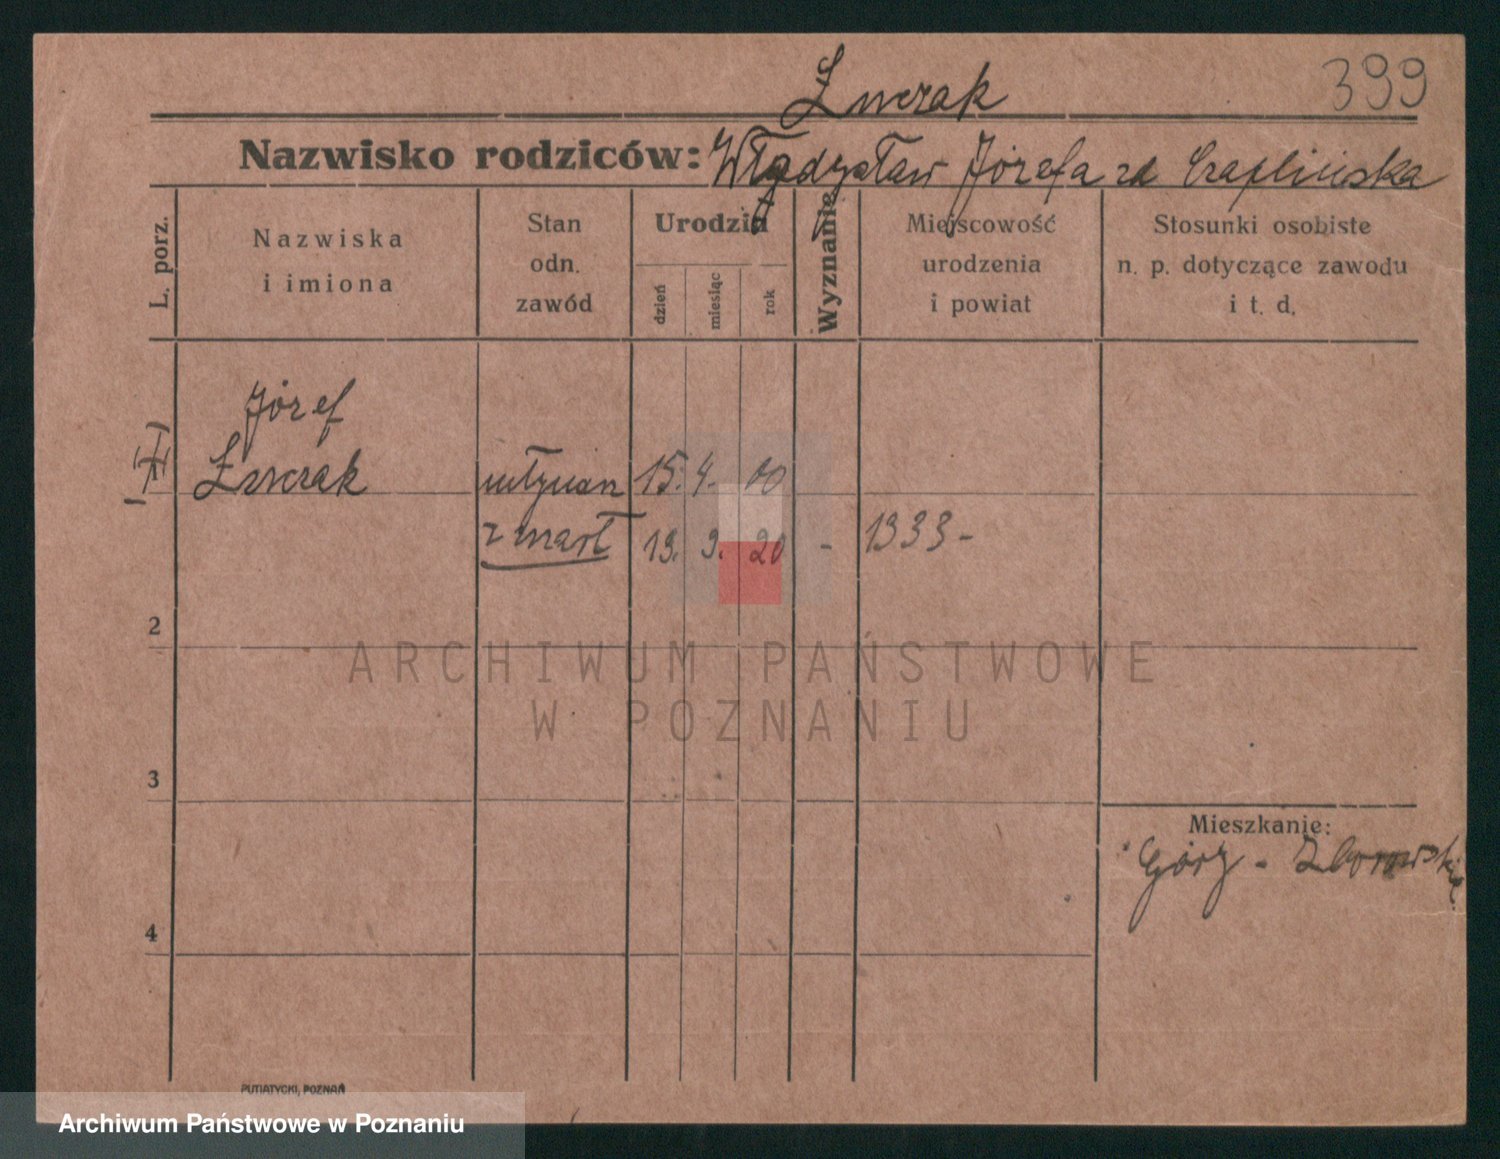 399
Żurczak
Nazwisko rodziców: Władysław Józefa zd Czaplińska
L. porz.
Nazwiska
i imiona
Stan
odn.
zawód
Urodzin
dzień
miesiąc
rok
Wyznanie
Miejscowość
urodzenia
i powiat
Stosunki osobiste
n. p. dotyczące zawodu
i t. d.
Józef
młynarz 15. 4. 00
zmarł 19. 9. 20 - 1933 -
2
ARCHIWUM PAŃSTWOWE
W POZNANIU
3
Mieszkanie:
4
PUTIATYCKI, POZNAŃ
Archiwum Państwowe w Poznaniu